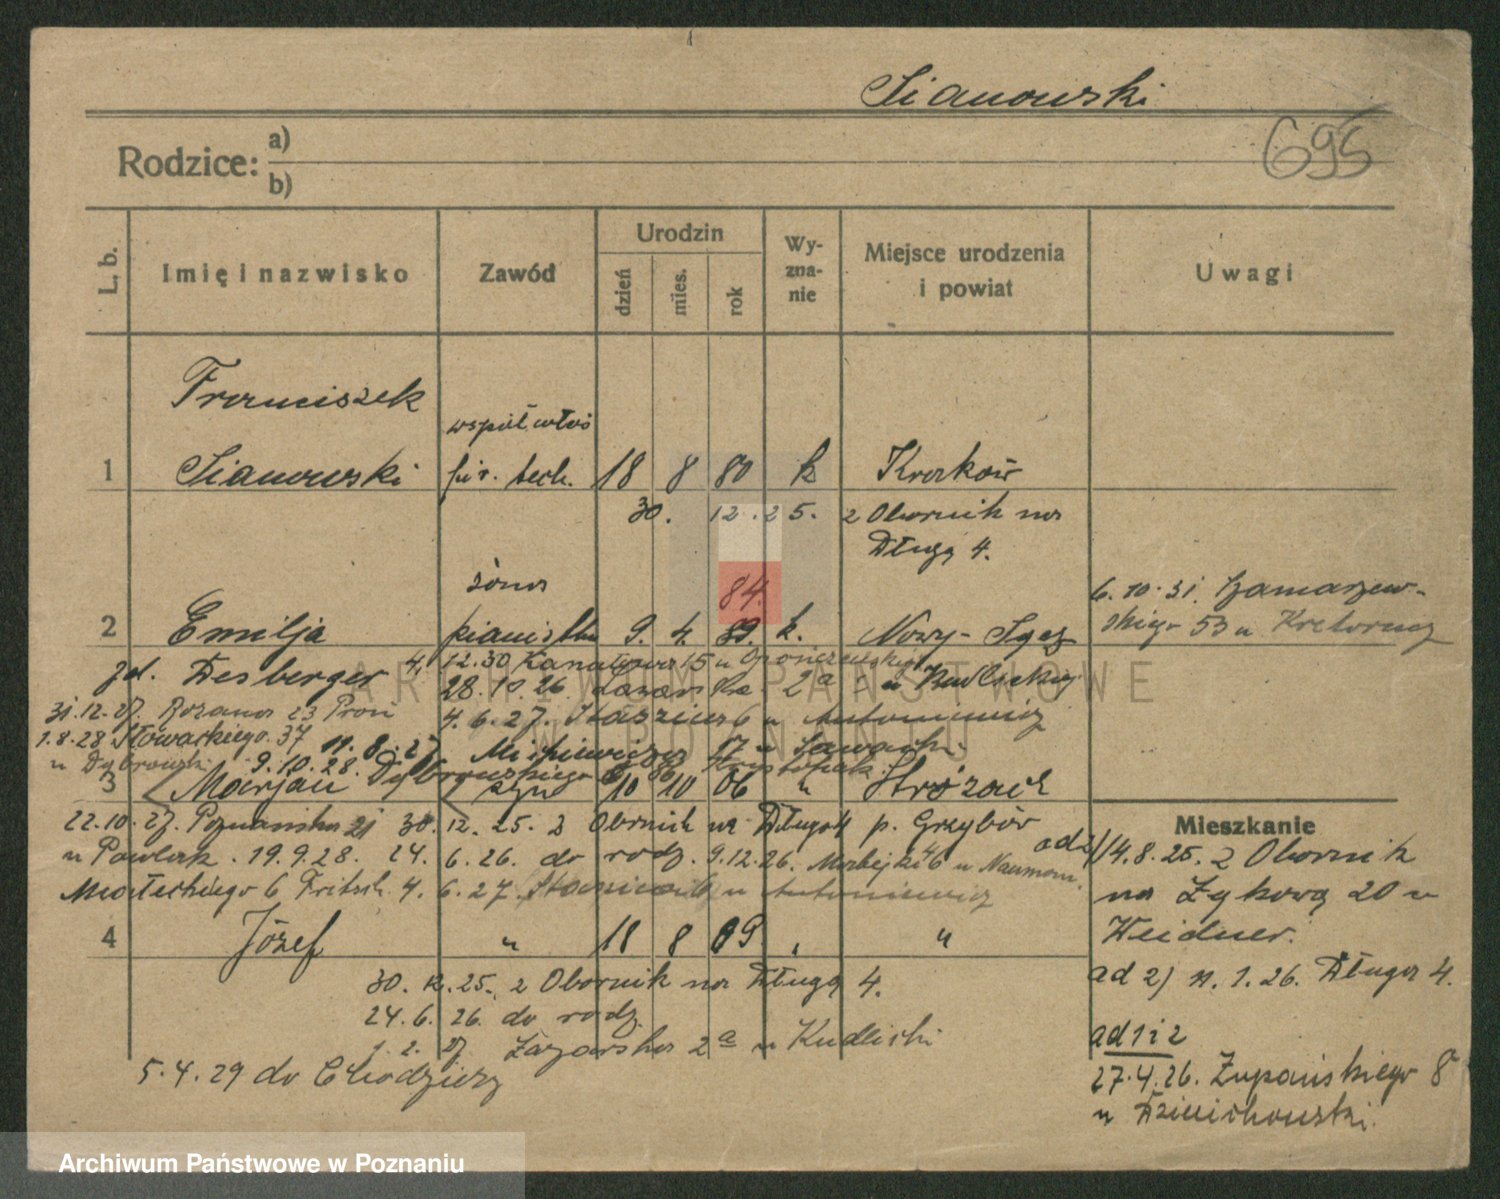 Sianowski
695
Rodzice: a)
b)
L. b.
Imię i nazwisko
Zawód
Urodzin
dzień
mies.
rok
Wy-
zna-
nie
Miejsce urodzenia
i powiat
Uwagi
Franciszek
współwłaś
1 Sianowski fir. tech. 18 8 80 k Kraków
30. 12. 25. z Obornik na
Długą 4.
żona
84.
2 Emilja pianistka 9. 4. 89. k. Nowy-Sącz
6. 10. 31. Szamarzew-
skiego 53 u
zd. Desberger 4. 12. 30 Kanałowa 15 u
28. 10. 26. Łazarska 2a u Kudlicki
31. 12. 27 Różana 23
4. 6. 27. Staszica 6 u Antoniewicz
1. 8. 28 Słowackiego 37
11. 8. 27 Mickiewicza 17 u
u Dąbrowski
9. 10. 28. Dąbrowskiego
3 Marjan syn 10 10 06 " Stróżach
22. 10. 27. Poznańska 21 30. 12. 25. z Obornik na Długą 4 p. Grybów
u Pawlak. 19. 9. 28. 24. 6. 26. do rodz. 9. 12. 26. Matejki 46 u Naumann.
Małeckiego 6 Fritsch. 4. 6. 27. Staszica 6 u Antoniewicz
4 Józef " 18 8 09 " "
30. 12. 25. z Obornik na Długą 4.
24. 6. 26. do rodz.
1. 2. 27 Łazarska 2a u Kudlicki
5. 4. 29 do Chodzieży
Mieszkanie
ad 1/ 14. 8. 25. z Obornik
na Żykową 20 u
Weidner.
ad 2) 11. 1. 26. Długa 4.
ad 1 i 2
27. 4. 26. Żupańskiego 8
u Dzinichowski.
ARCHIWUM PAŃSTWOWE
W POZNANIU
Archiwum Państwowe w Poznaniu